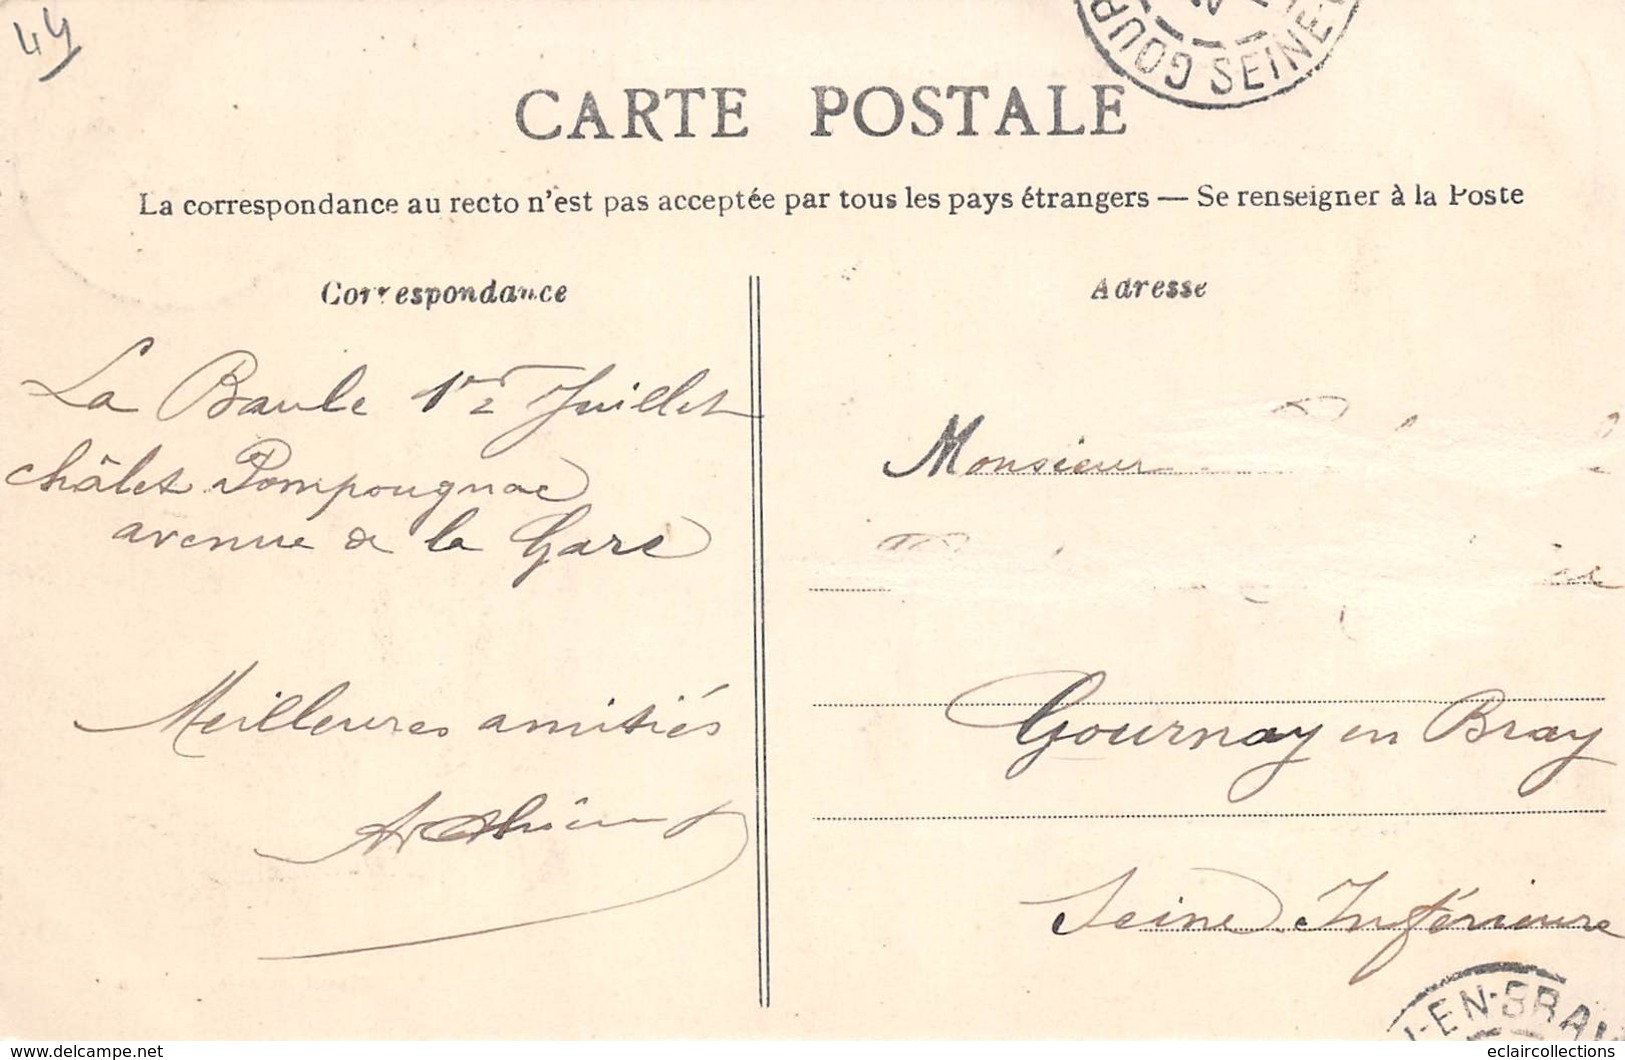 44
GOUR SEINE
CARTE POSTALE
La correspondance au recto n'est pas acceptée par tous les pays étrangers — Se renseigner à la Poste
Correspondance
La Baule 1er Juillet
châlet Pompougnac
avenue de la Gare
Meilleures amitiés
Adresse
Monsieur
Gournay en Bray
Seine Inférieure
-EN-BRAY
delcampe.net
eclaircollections